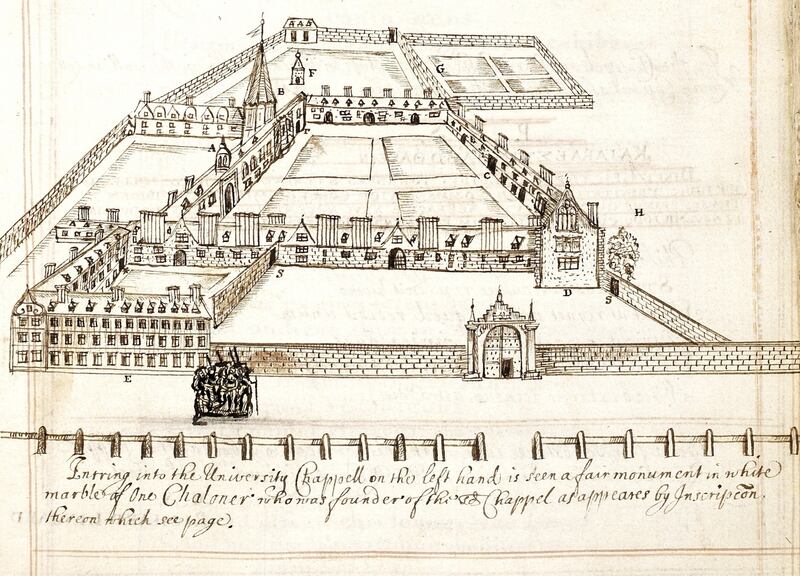 B
F
G
A
C
H
S
D
S
E
Entring into the University Chappell on the left hand is seen a fair monument in white
marble of One Chaloner who was founder of the Chappel as appeares by Inscripcōn
thereon which see page.